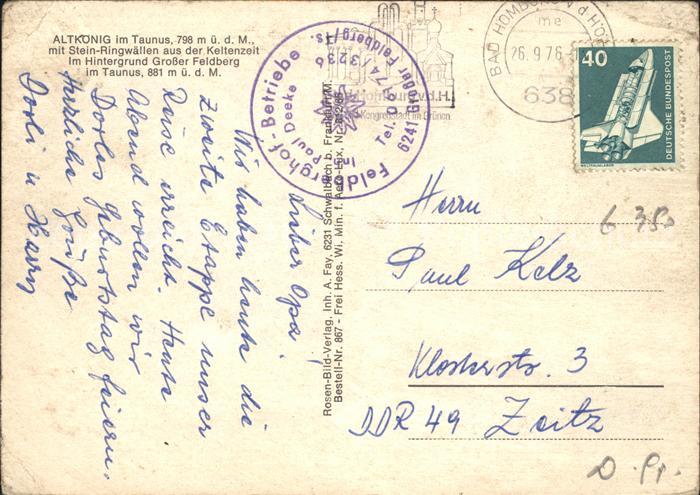 ALTKÖNIG im Taunus, 798 m ü. d. M.,
mit Stein-Ringwällen aus der Keltenzeit
Im Hintergrund Großer Feldberg
im Taunus, 881 m ü. d. M.
Lieber Opa!
Wir haben heute die
zweite Etappe unser
Reise erreicht. Heute
Abend wollen wir
Dorles Geburtstag feiern.
Herzliche Grüße
Dorli u Harry
Rosen-Bild-Verlag, Inh. A. Fay, 6231 Schwalbach b. Frankfurt/M.
Bestell-Nr. 867 - Frei Hess. Wi. Min. f. Aero-Lux, Nr.
Feldberghof-Betriebe
Inh. Paul Deeke
6241 Großer Feldberg/Ts.
Tel. 0 61 74 / 3236
Kongreßstadt im Grünen
BAD HOMBURG V.D.H.
26.9.76
638
me
40
DEUTSCHE BUNDESPOST
WELTRAUMLABOR
Herrn
Paul Kelz
Klosterstr. 3
DDR 49 Zeitz
6 380
D. Pr.